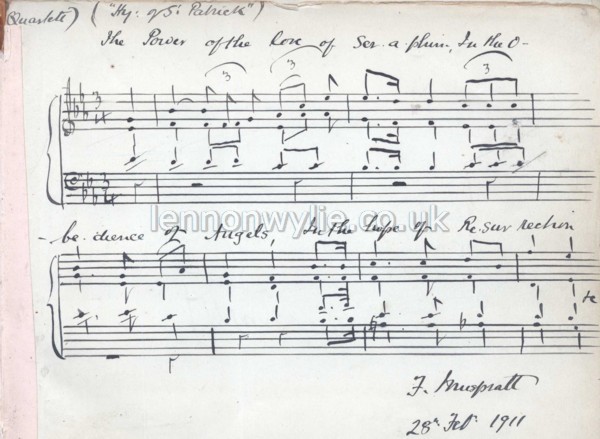 Quartett) ("Hy: of St Patrick")
The Power of the Love of Ser-a-phim, In the O-
3 3 3
3
4
lennonwylie.co.uk
-be-dience of Angels, In the hope of Re-sur-rection
to
28th Feb. 1911